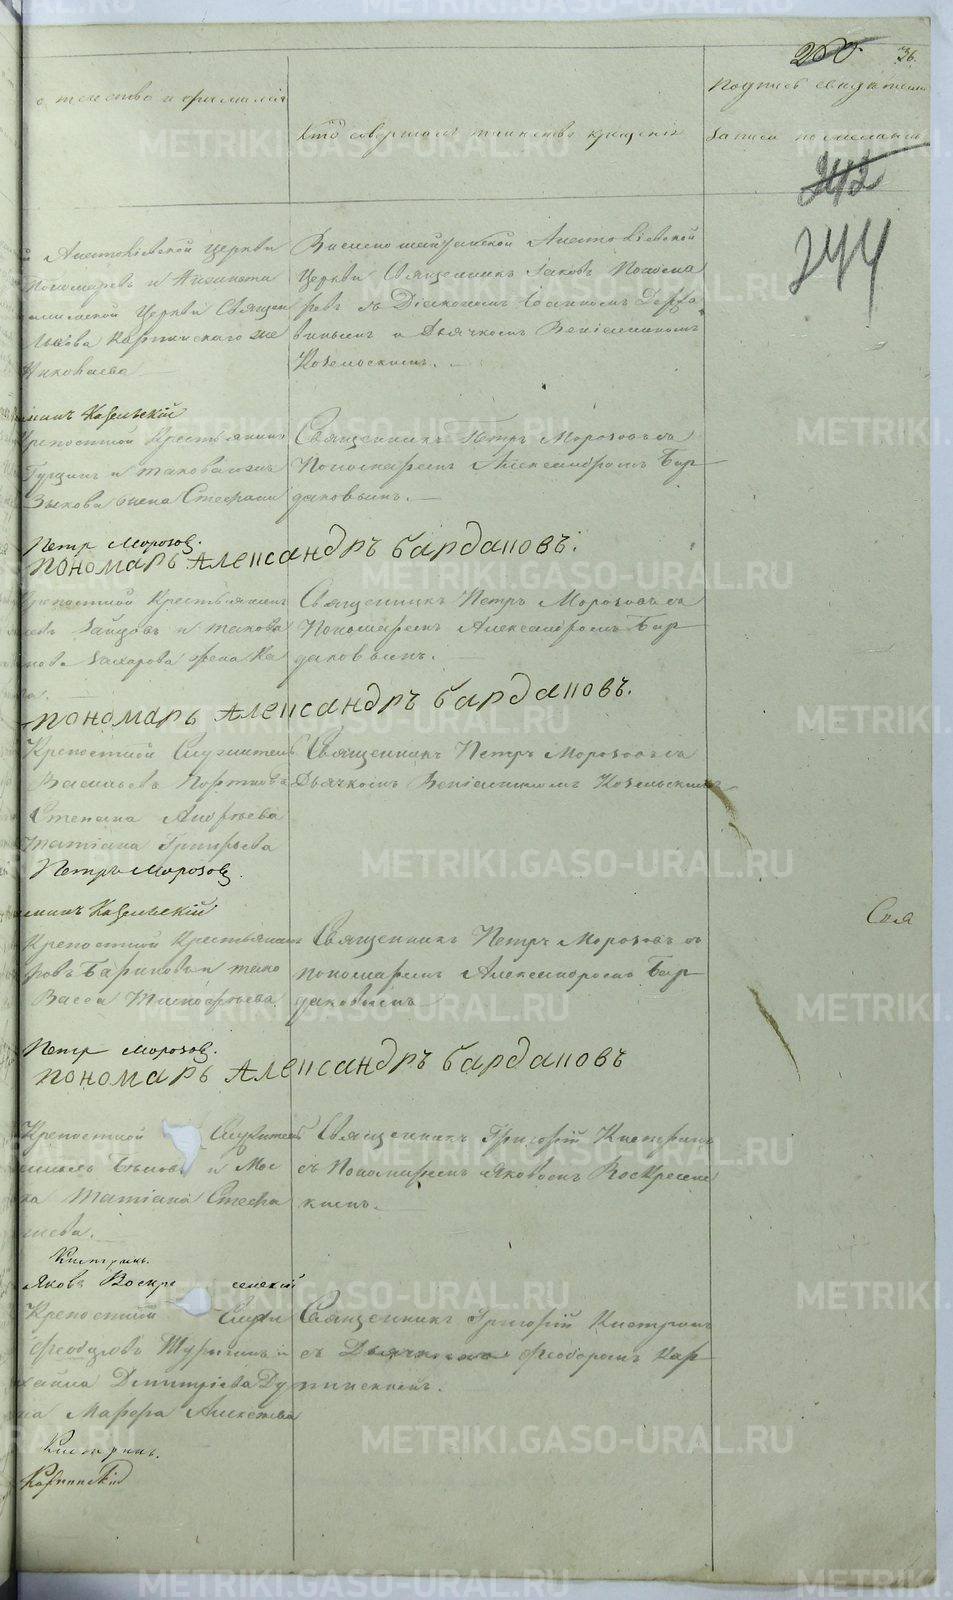 260. 36.
отчество и фамилія
Кто совершалъ таинство крещенія
Подпись свидѣтелей
записи по желанію
242
244
Анатоліевской Церкви
Пономаревъ и
Церкви Священ
Карпинскаго же
Николаева
Анатоліевской
Церкви Священникъ Іаковъ Понома
ревъ съ Діакономъ Іоанномъ Держа
винымъ и Дьячкомъ Веніаминомъ
Козельскимъ.
минъ Козельскій
Крепостной Крестьянинъ
Гущинъ и таковаяжъ
Зыкова жена Стефани
Священникъ Петръ Морозовъ съ
Пономаремъ Александромъ Бар
даковымъ.
Петр Морозов.
пономарь Александръ бардаповъ.
Крепостной Крестьянинъ
Зайцовъ и такова
Захарова жена Ка
Священникъ Петръ Морозовъ съ
Пономаремъ Александромъ Бар
даковымъ.
пономарь Александръ бардаповъ.
Крепостной Служитель
Васильевъ Портновъ
Степана Андреева
Татіана Григорьева
Священникъ Петръ Морозовъ съ
Дьячкомъ Веніаминомъ Козельскимъ
Петръ Морозов.
минъ Козельскій
Соля
Крепостной Крестьянинъ
ровъ Бариновъ и тако
Васса Тимофеева
Священникъ Петръ Морозовъ съ
пономаремъ Александромъ Бар
даковымъ
Петр Морозов.
пономарь Александръ бардаповъ
Крепостной Служитель
и Мос
ка Татіана Стефа
нова.
Священникъ Григорій Кистринъ
съ Пономаремъ Яковомъ Воскресенс
кимъ.
Кистринъ.
Яковъ Воскре сенскій
Крепостной Служи
Феодоровъ Турыгинъ и
хаила Димитріева Ду
на Марфа Алексѣева
Священникъ Григорій Кистринъ
съ Дьячкомъ Феодоромъ Кар
пинскимъ.
Кистринъ.
Карпинскій
METRIKI.GASO-URAL.RU